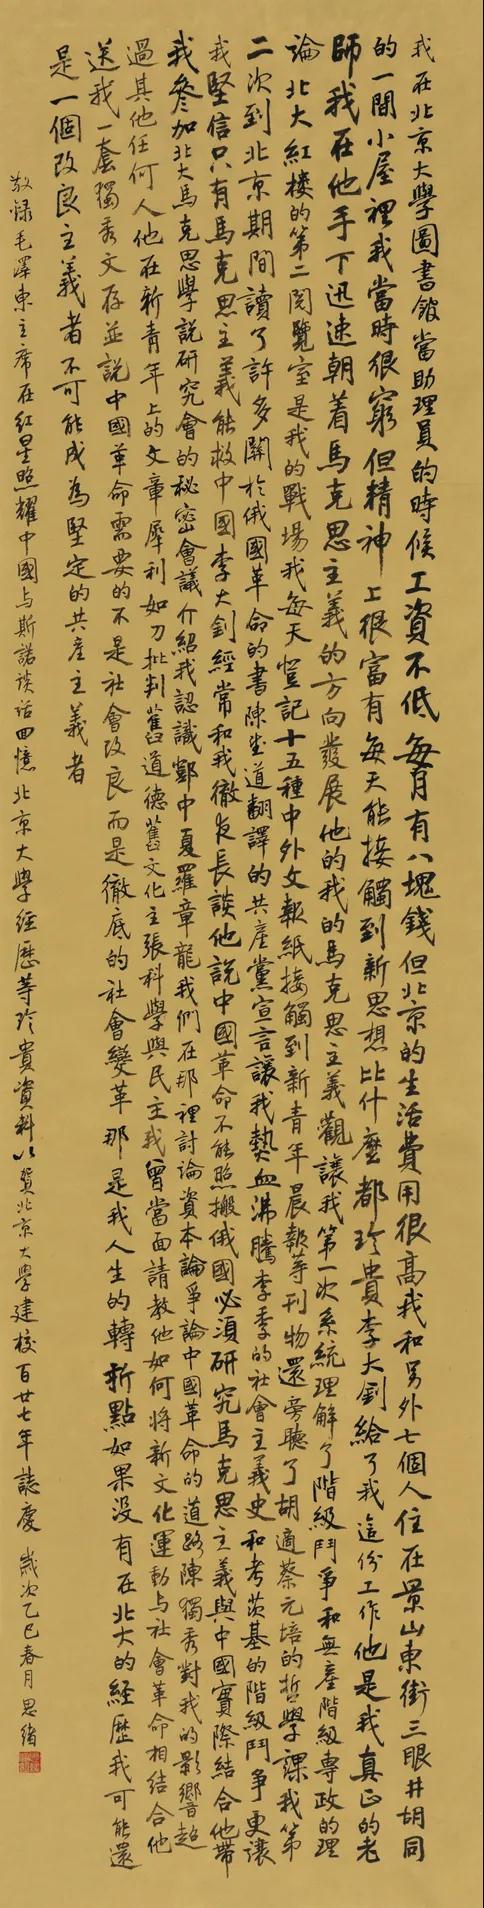 我在北京大學圖書館當助理員的時候工資不低每月有八塊錢但北京的生活費用很高我和另外七個人住在景山東街三眼井胡同
的一間小屋裡我當時很窮但精神上很富有每天能接觸到新思想比什麼都珍貴李大釗給了我這份工作他是我真正的老
師我在他手下迅速朝着馬克思主義的方向發展他的我的馬克思主義觀讓我第一次系統理解了階級鬥爭和無產階級專政的理
論北大紅楼的第二閱覽室是我的戰場我每天登記十五種中外文報紙接觸到新青年晨報等刊物還旁聽了胡適蔡元培的哲學課我第
二次到北京期間讀了許多關於俄國革命的書陳望道翻譯的共產黨宣言讓我熱血沸騰李季的社會主義史和考茨基的階級鬥爭更讓
我堅信只有馬克思主義能救中國李大釗經常和我徹夜長談他說中國革命不能照搬俄國必須研究馬克思主義與中國實際結合他帶
我參加北大馬克思學說研究會的秘密會議介紹我認識鄧中夏羅章龍我們在那裡討論資本論爭論中國革命的道路陳獨秀對我的影響超
過其他任何人他在新青年上的文章犀利如刀批判舊道德舊文化主張科學與民主我曾當面請教他如何將新文化運動与社會革命相結合他
送我一套獨秀文存並説中國革命需要的不是社會改良而是徹底的社會變革那是我人生的轉折點如果没有在北大的經歷我可能還
是一個改良主義者不可能成為堅定的共產主義者
敬録毛澤東主席在紅星照耀中國与斯諾談話回憶北京大學經歷等珍貴資料以賀北京大學建校百廿七年誌慶 歲次乙巳春月思緒